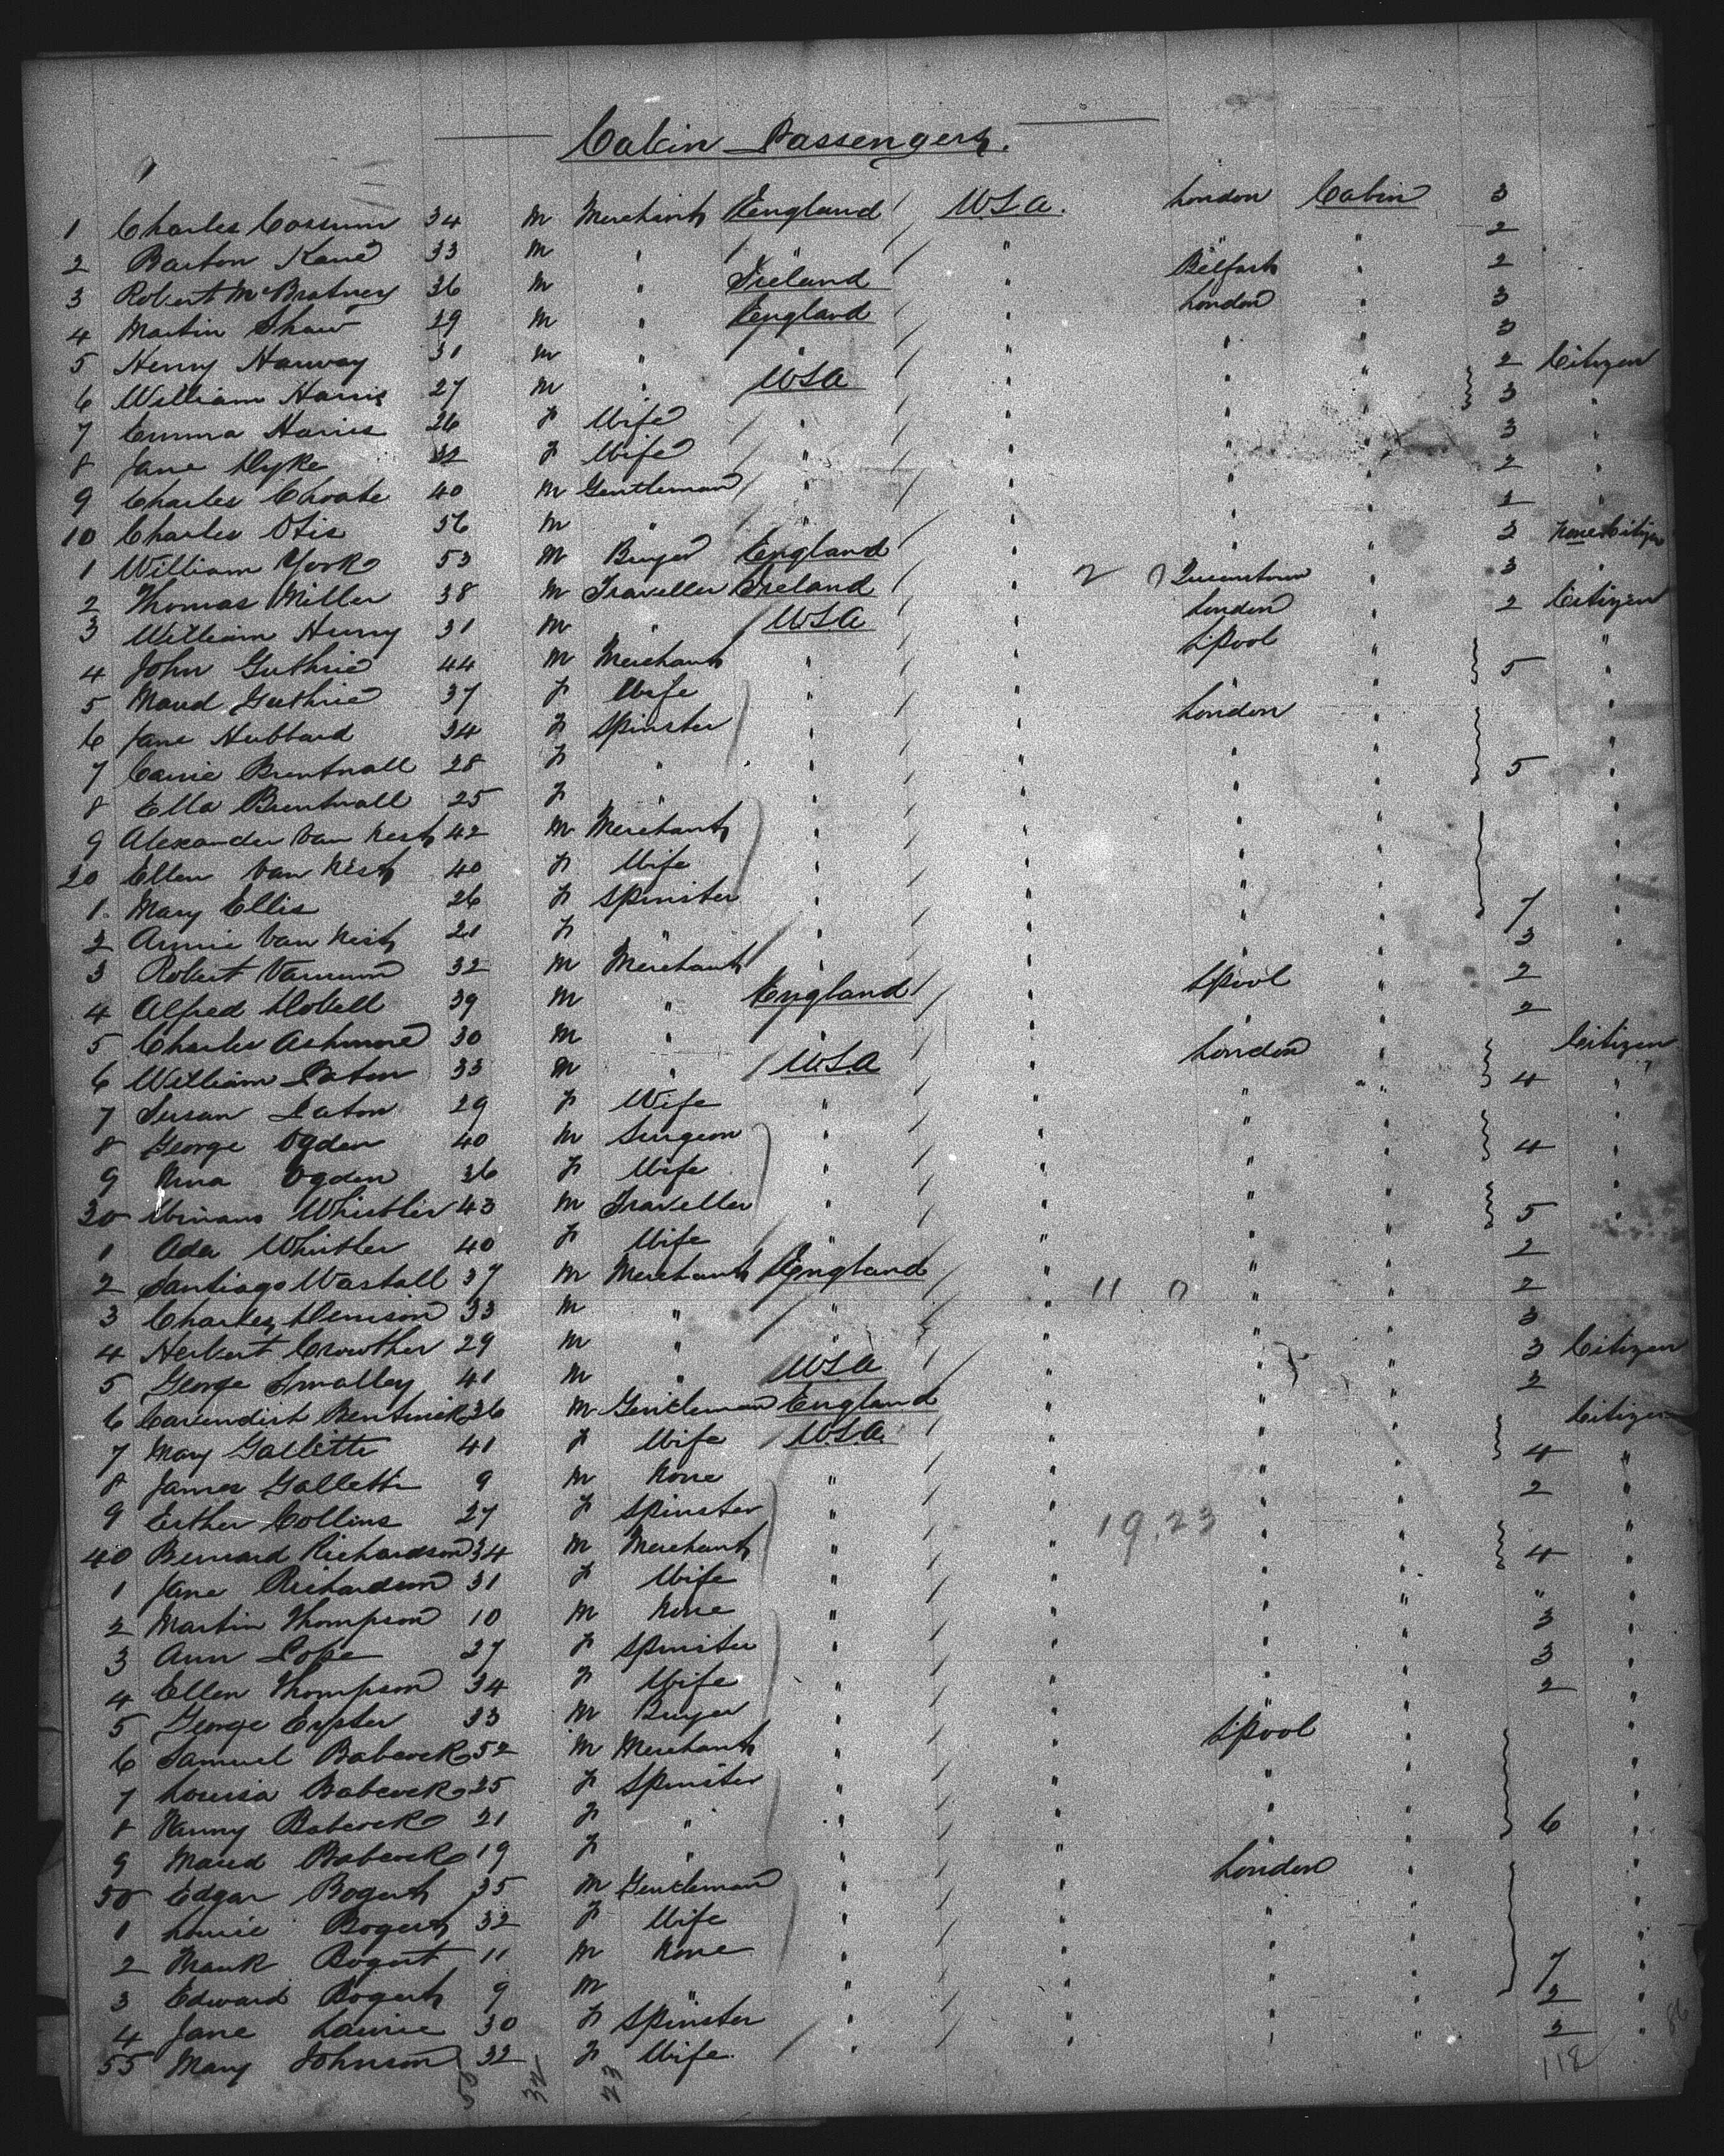 Cabin Passengers.
1 Charles Cossum 34 M Merchant England / U.S.A. London Cabin 3
2 Barton Kane 33 M " / " / " " " 2
3 Robert McBratney 36 M " Ireland / " Belfast " 2
4 Martin Shaw 29 M " England / " London " 3
5 Henry Harway 31 M " " / " " " 3
6 William Harris 27 M " U.S.A / " " " 2 Citizen
7 Emma Harris 26 F Wife / " / " " " 3 "
8 Jane Dyke 32 F Wife / " / " " " 3 "
9 Charles Choate 40 M Gentleman / " / " " " 2 "
10 Charles Otis 56 M " / " / " " " 2 "
1 William York 53 M Buyer England / " " " 2 None Citizen
2 Thomas Miller 38 M Traveller Ireland / " 2 0 Queenstown " 3 "
3 William Henry 31 M " / U.S.A / " London " 2 Citizen
4 John Guthrie 44 M Merchant " / " L'pool " "
5 Maud Guthrie 37 F Wife " / " " " 5 "
6 Jane Hubbard 34 F Spinster " / " London " "
7 Carrie Brentnall 28 F " " / " " " "
8 Ella Brentnall 25 F " " / " " " 5 "
9 Alexander Van Nest 42 M Merchant " / " " " "
20 Ellen Van Nest 40 F Wife " / " " " "
1 Mary Ellis 26 F Spinster " / " " " "
2 Annie Van Nest 21 F " / " / " " " 7 "
3 Robert Varnum 32 M Merchant / " / " " " 3 "
4 Alfred Dobell 39 M " England / " L'pool " 2
5 Charles Ashmore 30 M " / " / " " " 2
6 William Paton 33 M " / U.S.A / " London " Citizen
7 Susan Paton 29 F Wife " / " " " 4 "
8 George Ogden 40 M Surgeon " / " " " "
9 Nina Ogden 36 F Wife " / " " " 4 "
30 Winans Whistler 43 M Traveller " / " " " "
1 Ada Whistler 40 F Wife " / " " " 5 "
2 Santiago Wastall 37 M Merchant England / " " " 2
3 Charles Denison 33 M " / " / " 11 0 " " 2
4 Herbert Crowther 29 M " " / " " " 3
5 George Smalley 41 M " U.S.A / " " " 3 Citizen
6 Cavendish Bentinck 36 M Gentleman England / " " " 2
7 Mary Gallette 41 F Wife / U.S.A. / " " " Citizen
8 James Gallette 9 M None " / " " " 4 "
9 Esther Collins 27 F Spinster " / " " " 2 "
40 Bernard Richardson 34 M Merchant " / " 19.23 " " "
1 Jane Richardson 31 F Wife " / " " " 4 "
2 Martin Thompson 10 M None " / " " " " "
3 Ann Pope 27 F Spinster " / " " " 3 "
4 Ellen Thompson 34 F Wife " / " " " 3 "
5 George Eyster 33 M Buyer " / " " " 2 "
6 Samuel Babcock 52 M Merchant " / " L'pool " "
7 Louisa Babcock 25 F Spinster " / " " " "
8 Fanny Babcock 21 F " " / " " " "
9 Maud Babcock 19 F " " / " " " 6 "
50 Edgar Bogert 35 M Gentleman " / " London " "
1 Louie Bogert 32 F Wife " / " " " "
2 Mark Bogert 11 M None " / " " " "
3 Edward Bogert 9 M " " / " " " 7 "
4 Jane Laurie 30 F Spinster " / " " " 2 "
55 Mary Johnson 32 F Wife / " / " " " 2 "
32 23 118 86